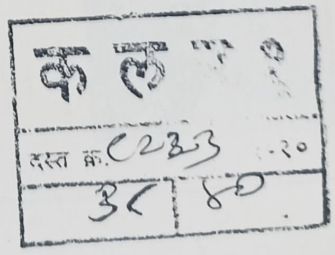 क ल
दस्त क्र. ८२३३ -२०
३८ ४०